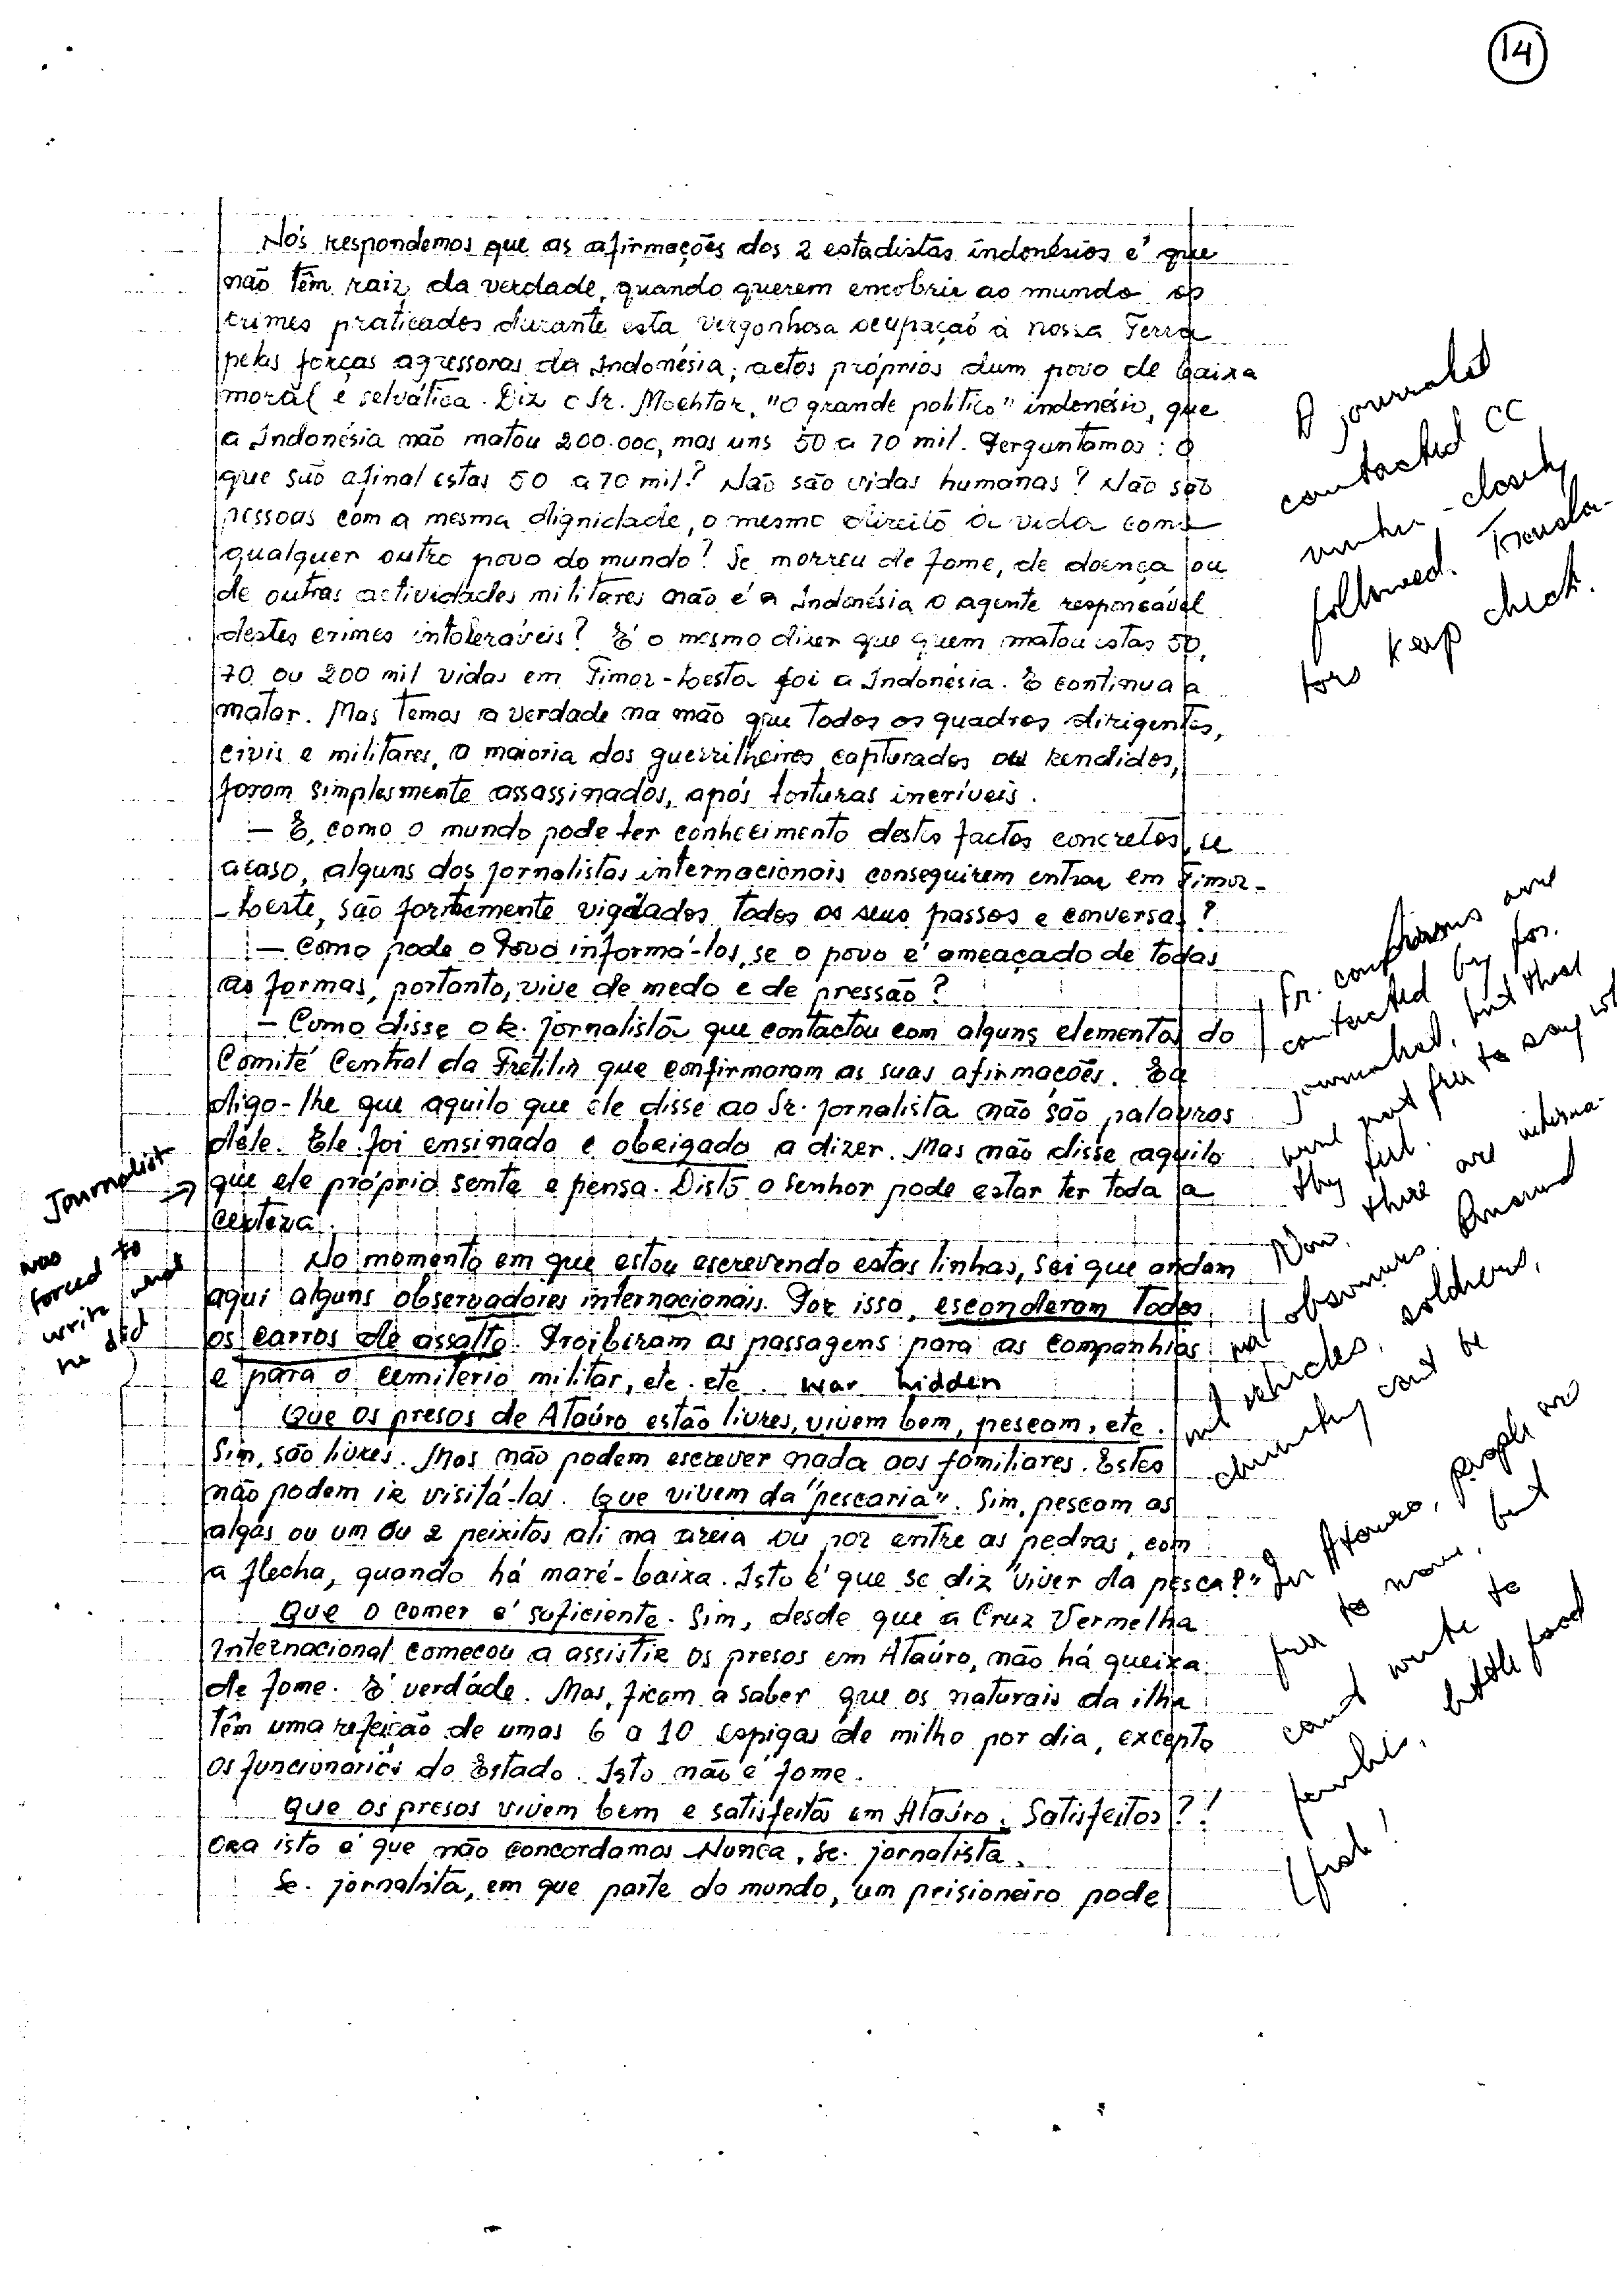 14
Nós respondemos que as afirmações dos 2 estadistas indonésios é que
não têm raiz da verdade, quando querem encobrir ao mundo os
crimes praticados durante esta vergonhosa ocupação à nossa Terra
pelas forças agressoras da Indonésia; actos próprios dum povo de baixa
moral e selvática. Diz o Sr. Mochtar, "o grande politico" indonésio, que
a Indonésia não matou 200.000, mas uns 50 a 70 mil. Perguntamos: O
que são afinal estas 50 a 70 mil? Não são vidas humanas? Não são
pessoas com a mesma dignidade, o mesmo direito à vida como
qualquer outro povo do mundo? Se morreu de fome, de doença ou
de outras actividades militares não é a Indonésia o agente responsável
destes crimes intoleráveis? É o mesmo dizer que quem matou estas 50,
70 ou 200 mil vidas em Timor-Leste foi a Indonésia. E continua a
matar. Mas temos a verdade na mão que todos os quadros dirigentes,
civis e militares, a maioria dos guerrilheiros, capturados ou rendidos,
foram simplesmente assassinados, após torturas incríveis.
- E, como o mundo pode ter conhecimento destes factos concretos, se
acaso, alguns dos jornalistas internacionais conseguirem entrar em Timor-
-Leste, são fortemente vigiados todos os seus passos e conversas?
- Como pode o Povo informá-los, se o povo é ameaçado de todas
as formas, portanto, vive de medo e de pressão?
- Como disse o Sr. jornalista que contactou com alguns elementos do
Comité Central da Fretilin que confirmaram as suas afirmações. Eu
digo-lhe que aquilo que ele disse ao Sr. jornalista não são palavras
dele. Ele foi ensinado e obrigado a dizer. Mas não disse aquilo
que ele próprio sente e pensa. Disto o Senhor pode estar ter toda a
certeza.
No momento em que estou escrevendo estas linhas, sei que andam
aqui alguns observadores internacionais. Por isso, esconderam todos
os carros de assalto. Proibiram as passagens para as companhias
e para o cemitério militar, etc. etc. war hidden
Que os presos de Ataúro estão livres, vivem bem, pescam, etc.
Sim, são livres. Mas não podem escrever nada aos familiares. Estes
não podem ir visitá-los. Que vivem da "pescaria". Sim, pescam as
algas ou um ou 2 peixitos ali na areia ou por entre as pedras, com
a flecha, quando há maré-baixa. Isto é que se diz "viver da pesca?"
Que o comer é suficiente. Sim, desde que a Cruz Vermelha
Internacional começou a assistir os presos em Ataúro, não há queixa
de fome. É verdade. Mas, ficam a saber que os naturais da ilha
têm uma refeição de umas 6 a 10 espigas de milho por dia, excepto
os funcionários do Estado. Isto não é fome.
Que os presos vivem bem e satisfeitos em Ataúro. Satisfeitos?!
Ora isto é que não concordamos Nunca, Sr. jornalista.
Sr. jornalista, em que parte do mundo, um prisioneiro pode
Journalist
was
forced to
write what
he did
A journalist
contacted CC
closely
followed. Transla-
tors keep check.
Fr. companions are
contacted by for.
journalist, but that
were not free to say wt
they feel.
Now, there are interna-
nal observers. Around
mil vehicles, soldiers,
can't be
In Atauro, people are
free to move, but
can't write to
families, little food
(fish!